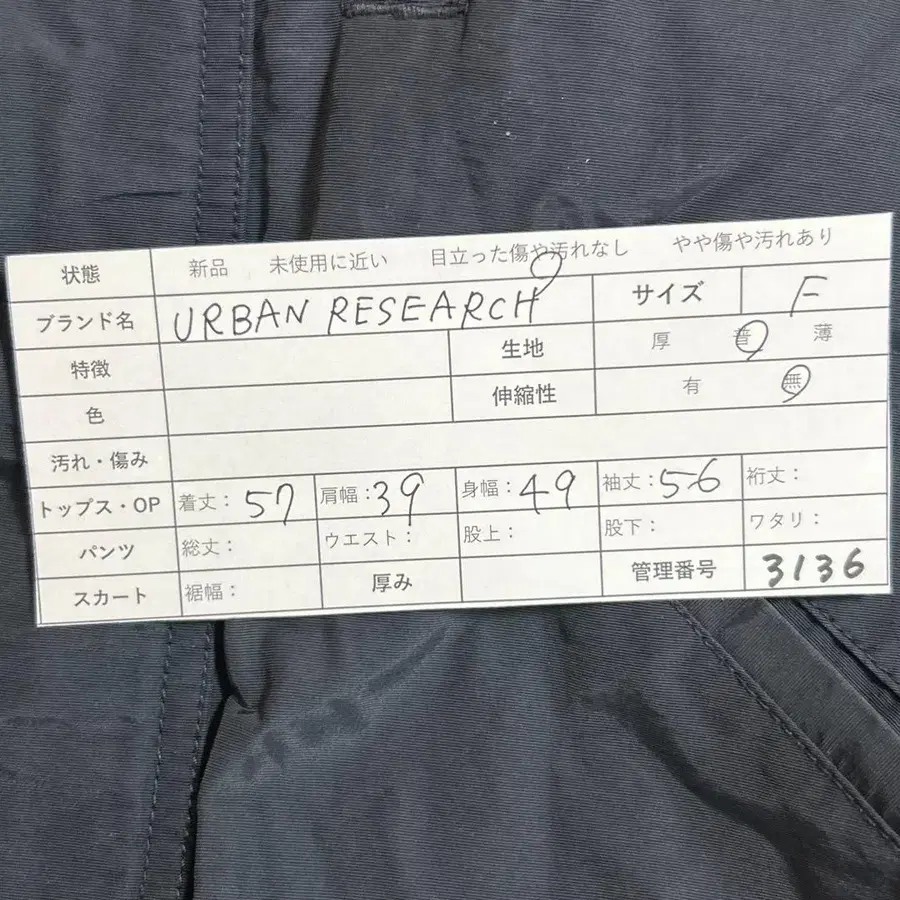 状態 新品 未使用に近い 目立った傷や汚れなし やや傷や汚れあり
ブランド名 URBAN RESEARCH サイズ F
特徴 生地 厚 普 薄
色 伸縮性 有 無
汚れ・傷み
トップス・OP 着丈: 57 肩幅: 39 身幅: 49 袖丈: 56 裄丈:
パンツ 総丈: ウエスト: 股上: 股下: ワタリ:
スカート 裾幅: 厚み 管理番号 3136